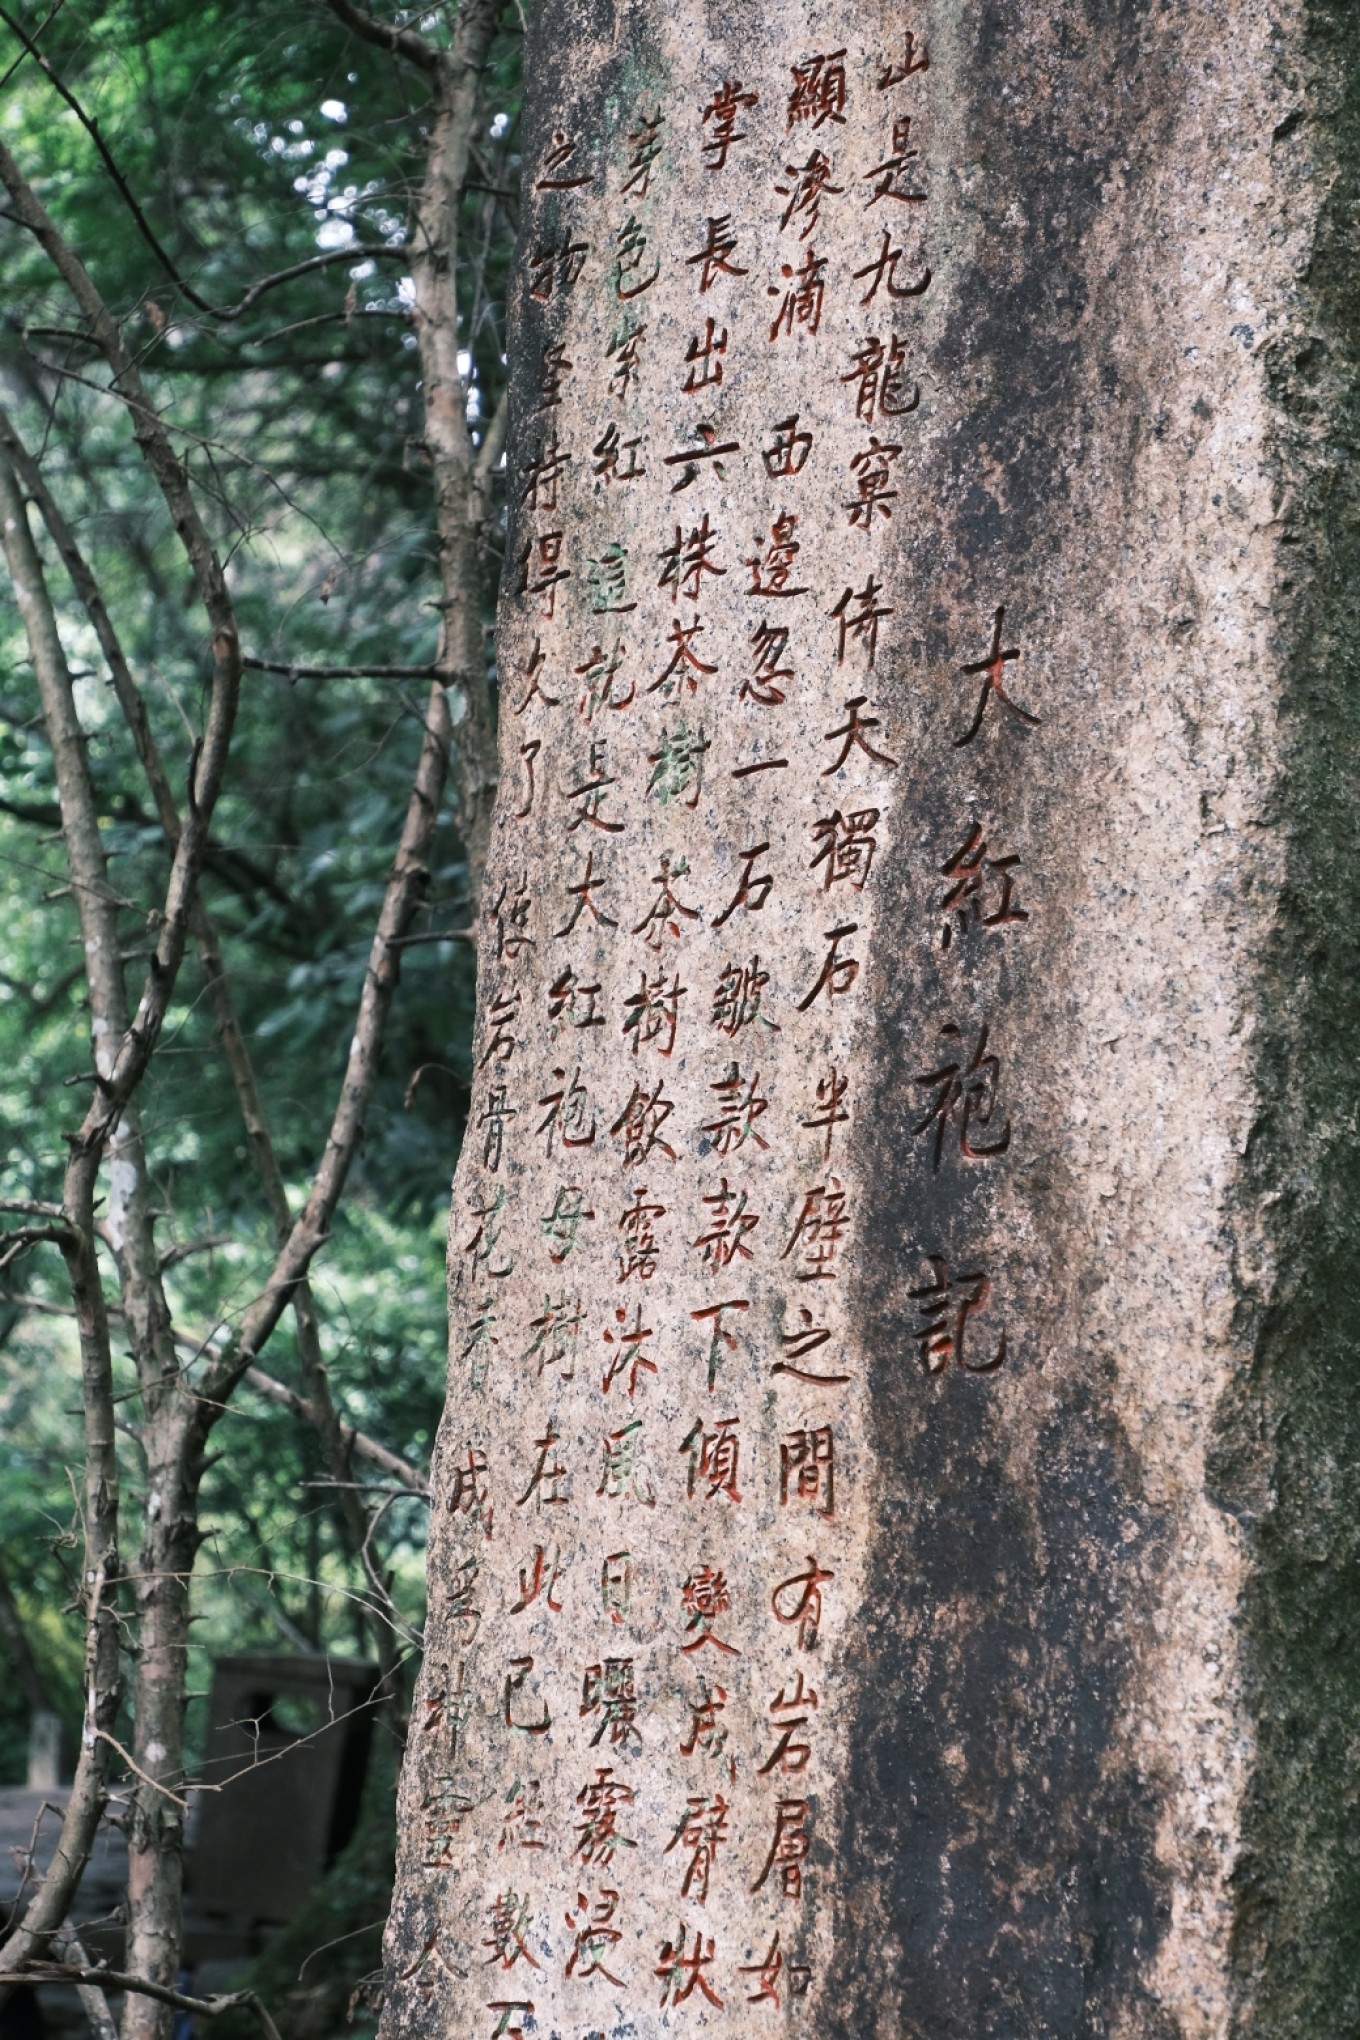 大紅袍記
山是九龍窠倚天獨石半壁之間有岩層如
顯滲滴西邊忽一石皺款款下傾變成臂狀
掌長出六株茶樹茶樹飲露沐風日曬霧浸
芽色紫紅這就是大紅袍母樹在此已經數
之物坚持得久了岩骨花香成為神靈人